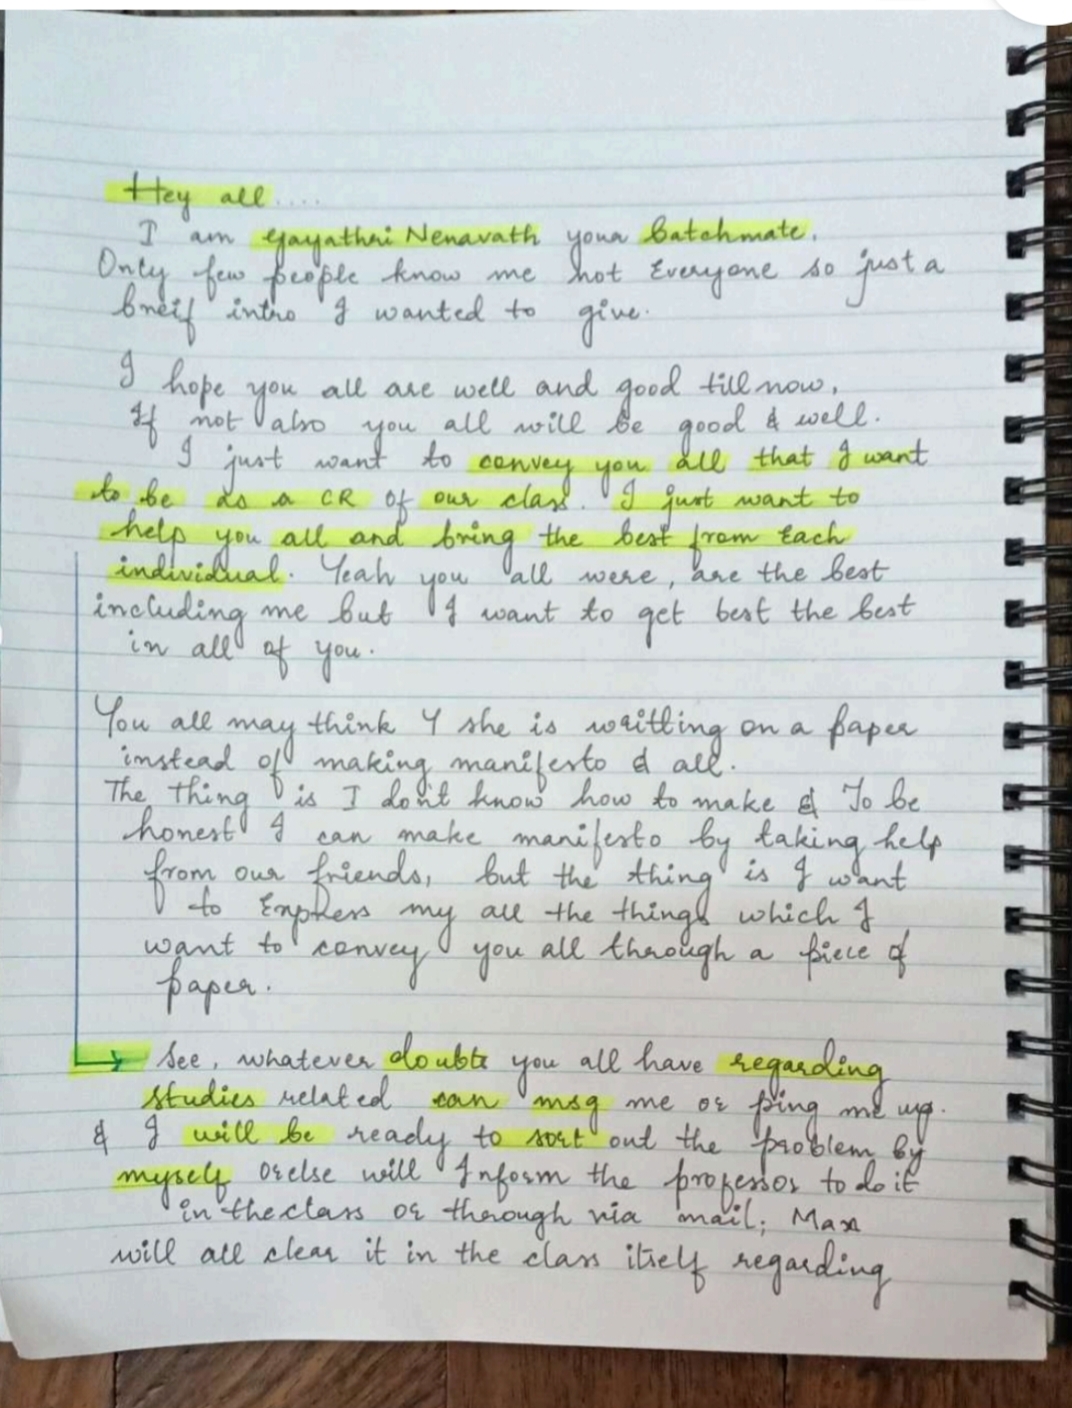 Hey all....
I am Gayathri Nenavath your batchmate.
Only few people know me not Everyone so just a
breif intro I wanted to give.
I hope you all are well and good till now.
If not also you all will be good & well.
I just want to convey you all that I want
to be as a CR of our class. I just want to
help you all and bring the best from Each
individual. Yeah you all were, are the best
including me but I want to get best the best
in all of you.
You all may think Y she is writting on a paper
instead of making manifesto & all.
The thing is I don't know how to make & To be
honest I can make manifesto by taking help
from our friends, but the thing is I want
to Express my all the things which I
want to convey you all through a piece of
paper.
See, whatever doubts you all have regarding
studies related can msg me or ping me up.
& I will be ready to sort out the problem by
myself orelse will Inform the professor to do it
in the class or through via mail; Max
will all clear it in the class itself regarding